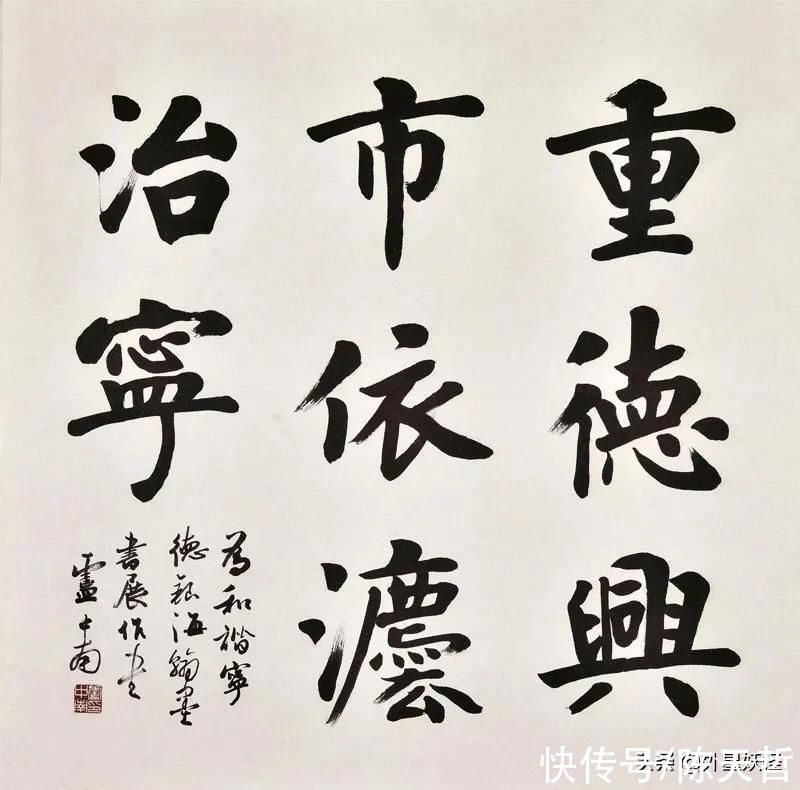 重德興
市依灋
治寧
為和諧寧
德海翰墨
書展作
盧中南
快传号/陈天哲